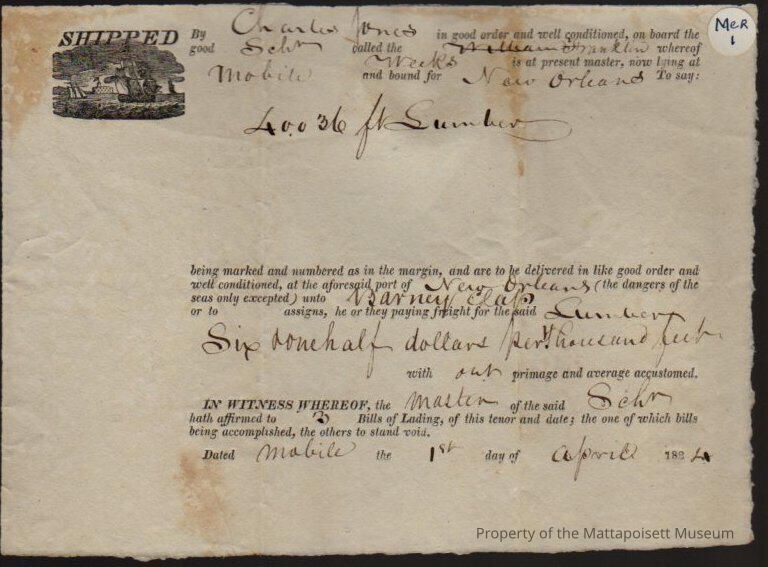 MER
1
SHIPPED By Charles Jones in good order and well conditioned, on board the
good Schr called the William Franklin whereof
Weeks is at present master, now lying at
Mobile and bound for New Orleans To say:
40036 ft Lumber
being marked and numbered as in the margin, and are to be delivered in like good order and
well conditioned, at the aforesaid port of New Orleans (the dangers of the
seas only excepted) unto Barney Clap
or to assigns, he or they paying freight for the said Lumber
Six & onehalf dollars per thousand feet
with out primage and average accustomed.
IN WITNESS WHEREOF, the Master of the said Schr
hath affirmed to 3 Bills of Lading, of this tenor and date; the one of which bills
being accomplished, the others to stand void.
Dated Mobile the 1st day of April 1824
Property of the Mattapoisett Museum